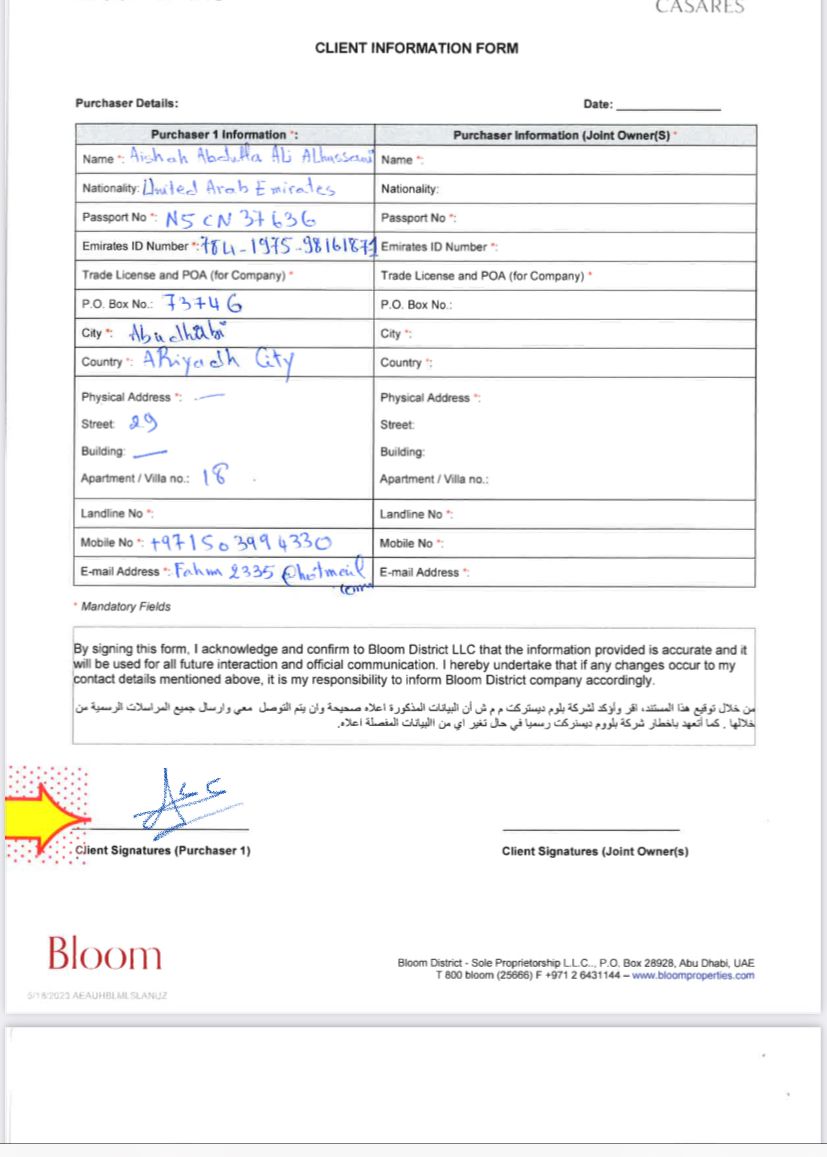 CASARES
CLIENT INFORMATION FORM
Purchaser Details:
Date:
Purchaser 1 Information *:
Purchaser Information (Joint Owner(S) *
Name *: Aishah Abdulla Ali Alhassani
Name *:
Nationality: United Arab Emirates
Nationality:
Passport No *: N5 CN 37636
Passport No *:
Emirates ID Number *: 784-1975-98161871
Emirates ID Number *:
Trade License and POA (for Company) *
Trade License and POA (for Company) *
P.O. Box No.: 73746
P.O. Box No.:
City *: Abudhabi
City *:
Country *: ARiyadh City
Country *:
Physical Address *: —
Physical Address *:
Street: 29
Street:
Building: —
Building:
Apartment / Villa no.: 18
Apartment / Villa no.:
Landline No *:
Landline No *:
Mobile No *: +971503994330
Mobile No *:
E-mail Address *: Fahm 2335 @hotmail
com
E-mail Address *:
* Mandatory Fields
By signing this form, I acknowledge and confirm to Bloom District LLC that the information provided is accurate and it
will be used for all future interaction and official communication. I hereby undertake that if any changes occur to my
contact details mentioned above, it is my responsibility to inform Bloom District company accordingly.
من خلال توقيع هذا المستند، اقر وأؤكد لشركة بلوم ديستركت م م ش أن البيانات المذكورة اعلاه صحيحة وان يتم التوصل معي وارسال جميع المراسلات الرسمية من
خلالها . كما أتعهد باخطار شركة بلووم ديستركت رسميا في حال تغير اي من االبيانات المفصلة اعلاه.
Client Signatures (Purchaser 1)
Client Signatures (Joint Owner(s)
Bloom
Bloom District - Sole Proprietorship L.L.C.., P.O. Box 28928, Abu Dhabi, UAE
T 800 bloom (25666) F +971 2 6431144 – www.bloomproperties.com
5/18/2023 AEAUHBLMLSLANUZ